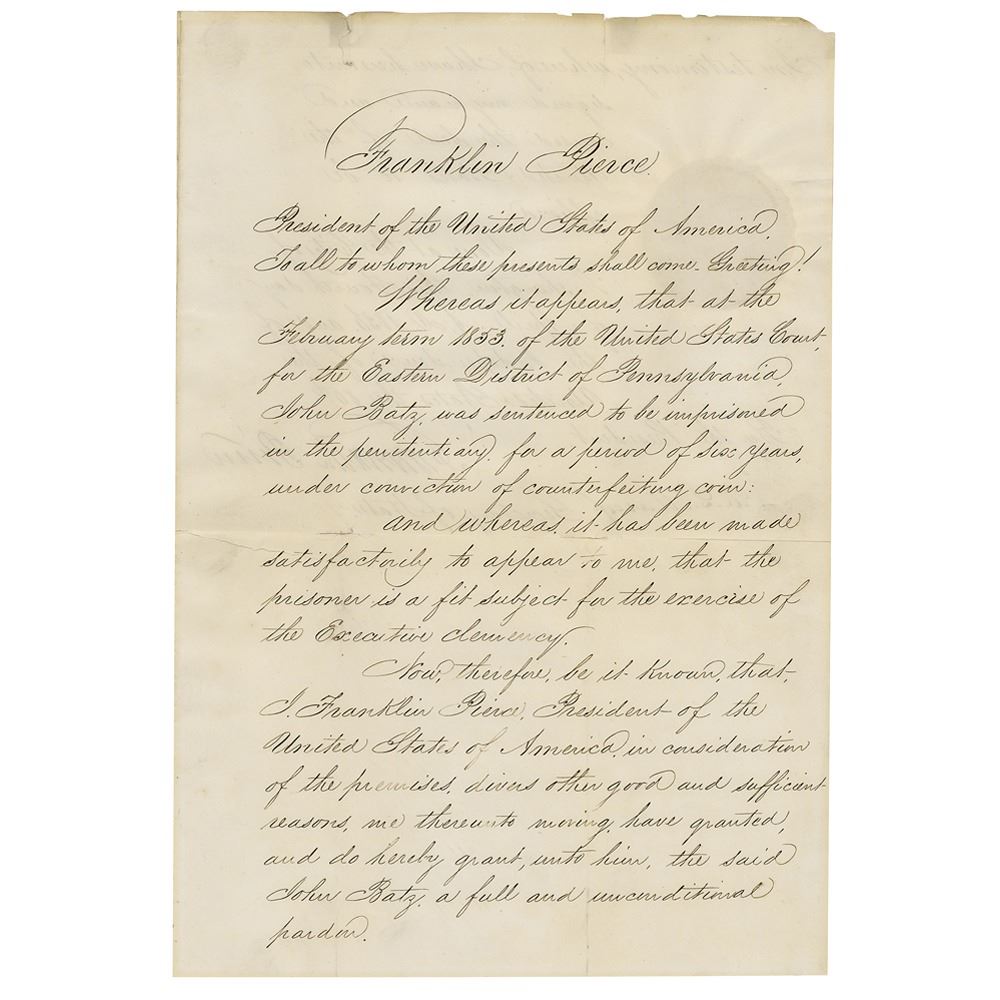 Franklin Pierce.
President of the United States of America,
To all to whom these presents shall come. Greeting!
Whereas it appears, that at the
February term 1853. of the United States Court,
for the Eastern District of Pennsylvania,
John Batz, was sentenced to be imprisoned
in the penitentiary, for a period of six years,
under conviction of counterfeiting coin:
and whereas, it has been made
satisfactorily to appear to me, that the
prisoner is a fit subject for the exercise of
the Executive clemency.
Now, therefore, be it known, that,
I. Franklin Pierce, President of the
United States of America, in consideration
of the premises, divers other good and sufficient
reasons, me thereunto moving, have granted,
and do hereby grant, unto him, the said
John Batz, a full and unconditional
pardon.